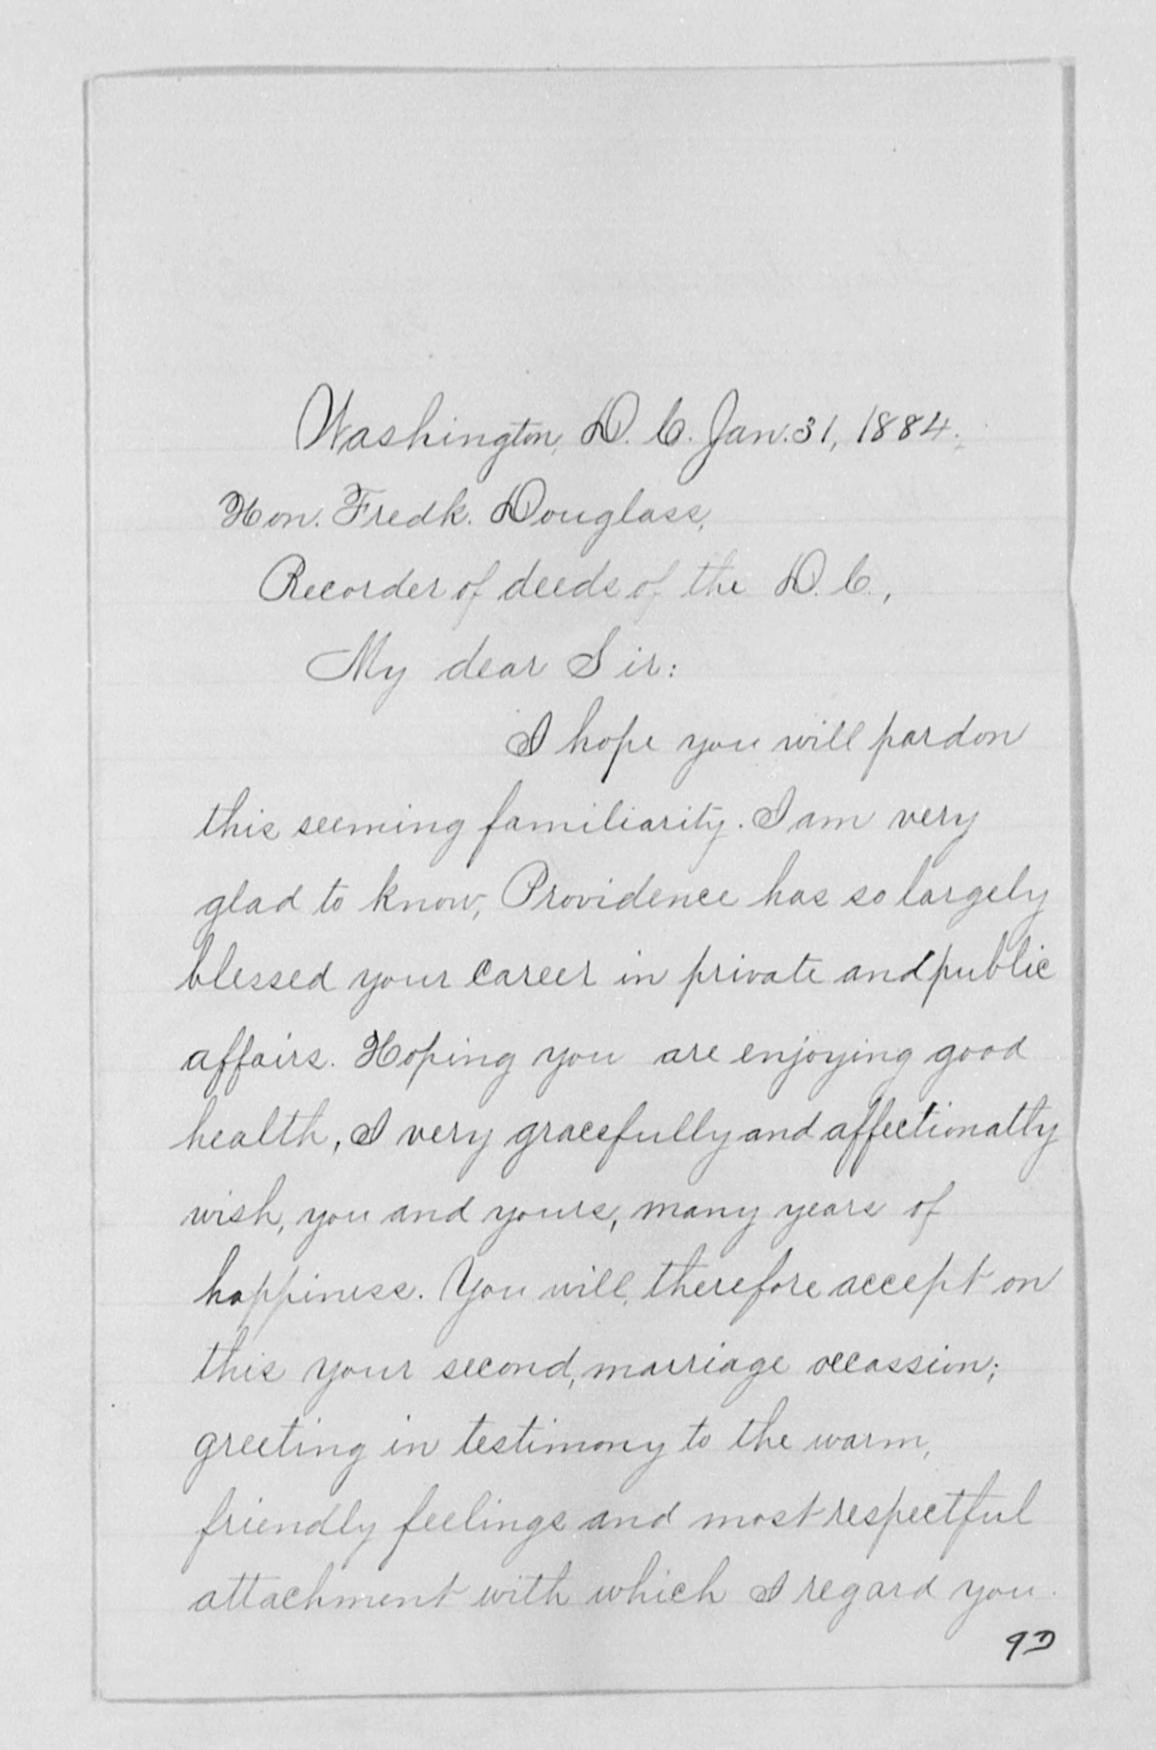 Washington, D. C. Jan. 31, 1884.
Hon. Fredk. Douglass,
Recorder of deeds of the D. C.,
My dear Sir:
I hope you will pardon
this seeming familiarity. I am very
glad to know, Providence has so largely
blessed your career in private and public
affairs. Hoping you are enjoying good
health, I very gracefully and affectionatly
wish, you and yours, many years of
happiness. You will, therefore accept on
this your second, marriage occassion;
greeting in testimony to the warm,
friendly feelings and most respectful
attachment with which I regard you.